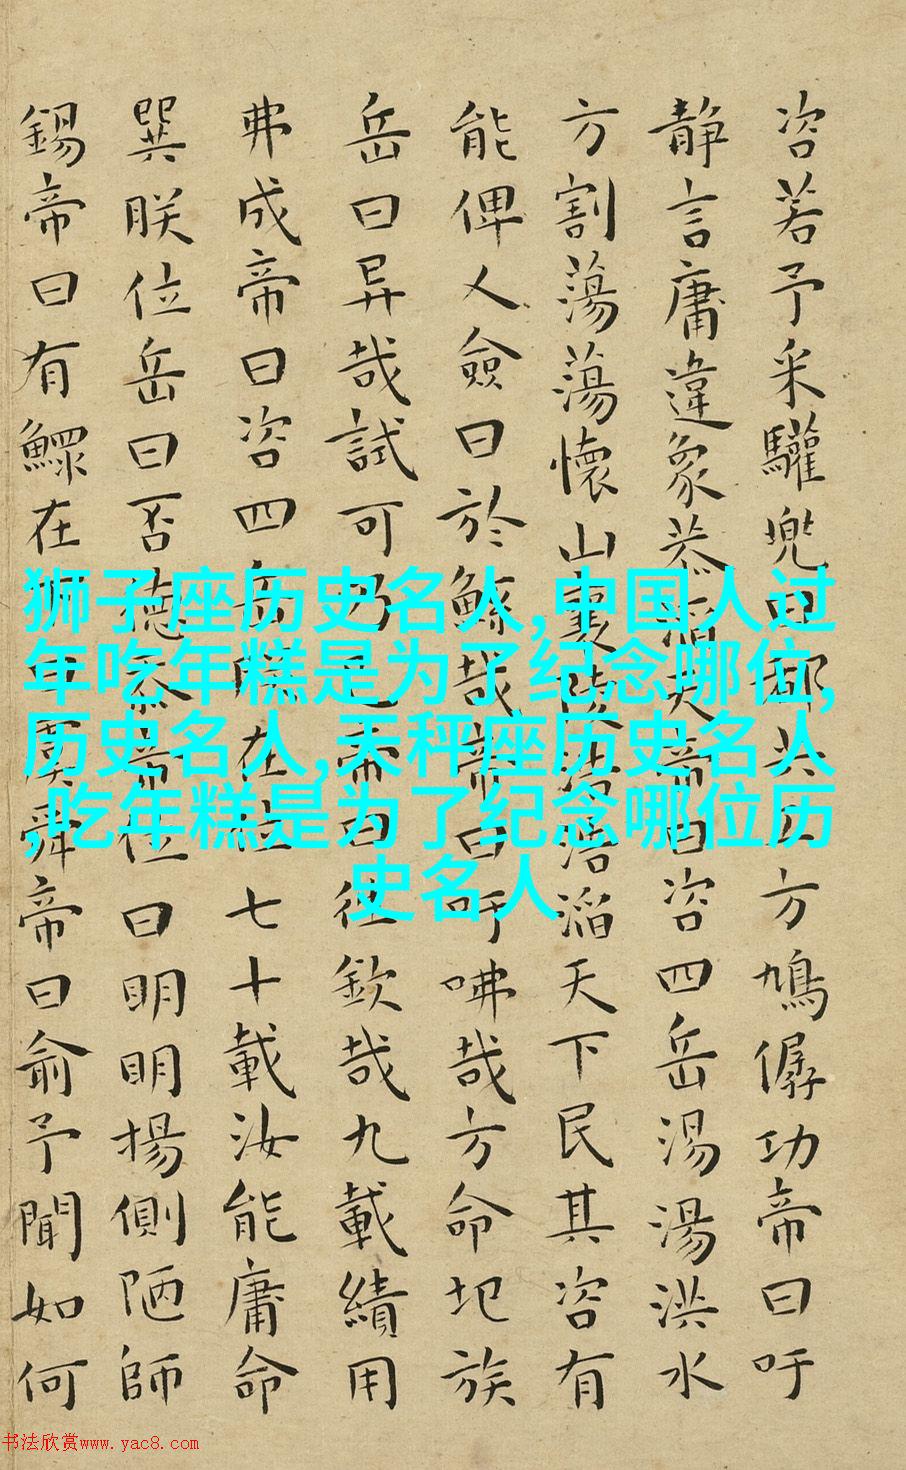 咨若予采驩兜曰都共工方鳩僝功帝曰吁
静言庸違象恭滔天帝曰咨四岳湯湯洪水
方割蕩蕩懷山襄陵浩浩滔天下民其咨有
能俾乂僉曰於鯀哉帝曰吁咈哉方命圮族
岳曰异哉試可乃已帝曰往欽哉九載績用
弗成帝曰咨四岳朕在位七十載汝能庸命
巽朕位岳曰否德忝帝位曰明明揚側陋師
錫帝曰有鰥在下曰虞舜帝曰俞予聞如何
狮子座历史名人,中国人过
年吃年糕是为了纪念哪位,
历史名人,天秤座历史名人
,吃年糕是为了纪念哪位历
史名人
书法欣赏www.yac8.com